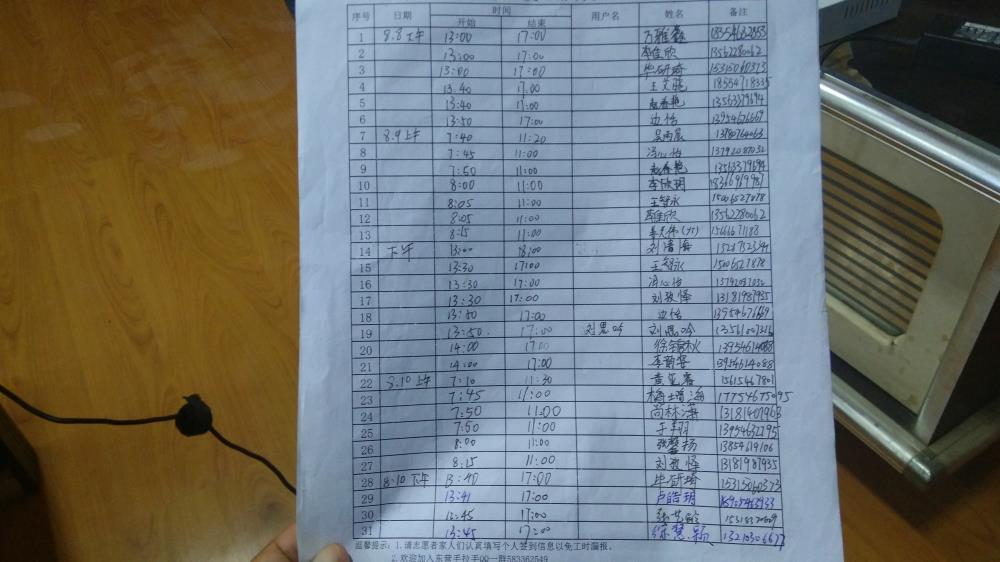 序号 日期 时间 用户名 姓名 备注
开始 结束
1 8.8下午 13:00 17:00
2 13:00 17:00 李佳欣 13562280062
3 13:00 17:00 毕研琦 15315060373
4 13:40 17:00 王艾晓 18554718335
5 13:40 17:00 13563379694
6 13:50 17:00 边怡 13954676669
7 8.9上午 7:40 11:20
8 7:45 11:00 冯心怡 13792087032
9 7:50 11:00 13563379694
10 8:00 11:00 李欣玥
11 8:05 11:00 王智永 15006527878
12 8:05 11:00 李佳欣 13562280062
13 8:15 11:00
14 下午 13:00 18:00 刘清海
15 13:30 17:00 王智永 15006527878
16 13:30 17:00 冯心怡 13792087032
17 13:30 17:00 刘孜怿 13181987935
18 13:50 17:00 边怡 13954676669
19 13:50 17:00 刘思吟 刘思吟
20 14:00 17:00 13954614088
21 14:00 17:00 13954614088
22 8.10上午 7:10 11:30 15615467801
23 7:45 11:00 17754675095
24 7:50 11:00 尚林涛 13181407963
25 7:50 11:00 于翔 13954632795
26 8:00 11:00 张馨扬 13854619106
27 8:15 11:00 刘孜怿 13181987935
28 8.10下午 13:40 17:00 毕研琦 15315060373
29 13:41 17:00 卢皓玥
30 13:45 17:00
31 13:45 17:00 徐慧颖 13210306677
温馨提示：1.请志愿者家人们认真填写个人签到信息以免工时漏报。
2.欢迎加入东营手拉手QQ一群583362549